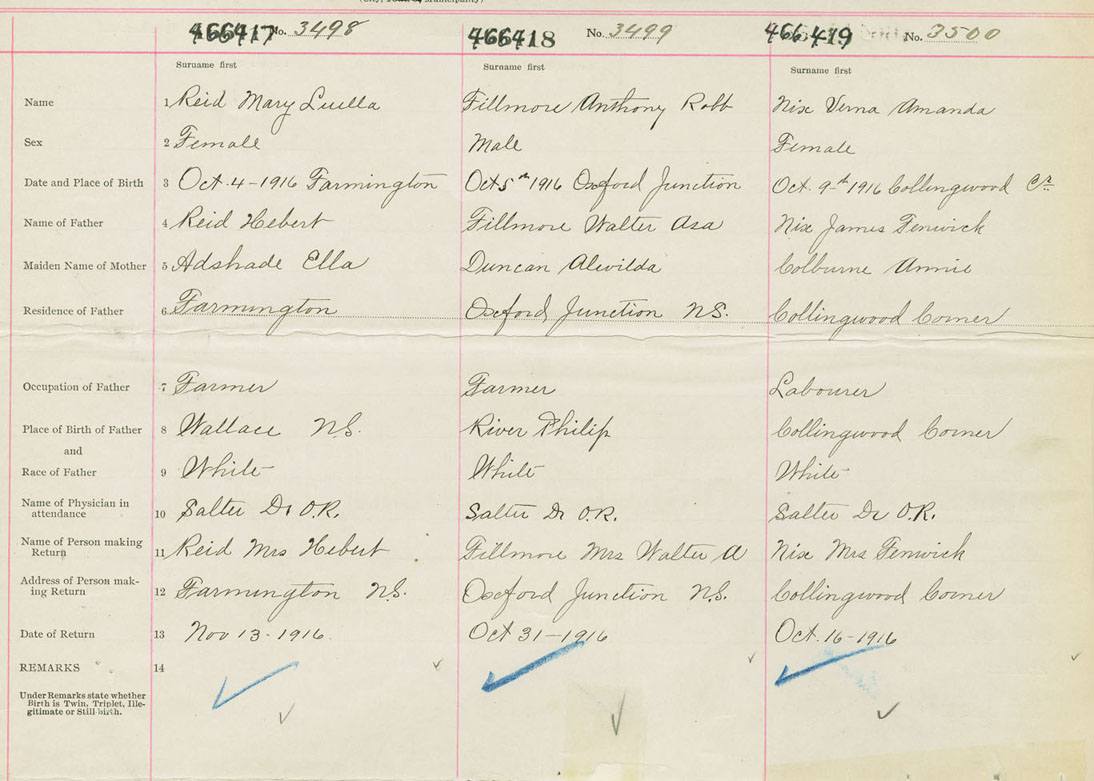 466417 No. 3498 466418 No. 3499 466419 No. 3500
Surname first Surname first Surname first
Name 1 Reid Mary Luella Fillmore Anthony Robb Nix Verna Amanda
Sex 2 Female Male Female
Date and Place of Birth 3 Oct. 4 - 1916 Farmington Oct 5th 1916 Oxford Junction Oct. 9th 1916 Collingwood Cr.
Name of Father 4 Reid Hebert Fillmore Walter Asa Nix James Fenwick
Maiden Name of Mother 5 Adshade Ella Duncan Alevilda Colburne Annie
Residence of Father 6 Farmington Oxford Junction N.S. Collingwood Corner
Occupation of Father 7 Farmer Farmer Labourer
Place of Birth of Father 8 Wallace N.S. River Philip Collingwood Corner
and
Race of Father 9 White White White
Name of Physician in
attendance 10 Salter Dr O.R. Salter Dr O.R. Salter Dr O.R.
Name of Person making
Return 11 Reid Mrs Hebert Fillmore Mrs Walter A Nix Mrs Fenwick
Address of Person mak-
ing Return 12 Farmington N.S. Oxford Junction N.S. Collingwood Corner
Date of Return 13 Nov 13 - 1916. Oct 31 - 1916 Oct. 16 - 1916
REMARKS 14
Under Remarks state whether
Birth is Twin, Triplet, Ille-
gitimate or Still-birth.